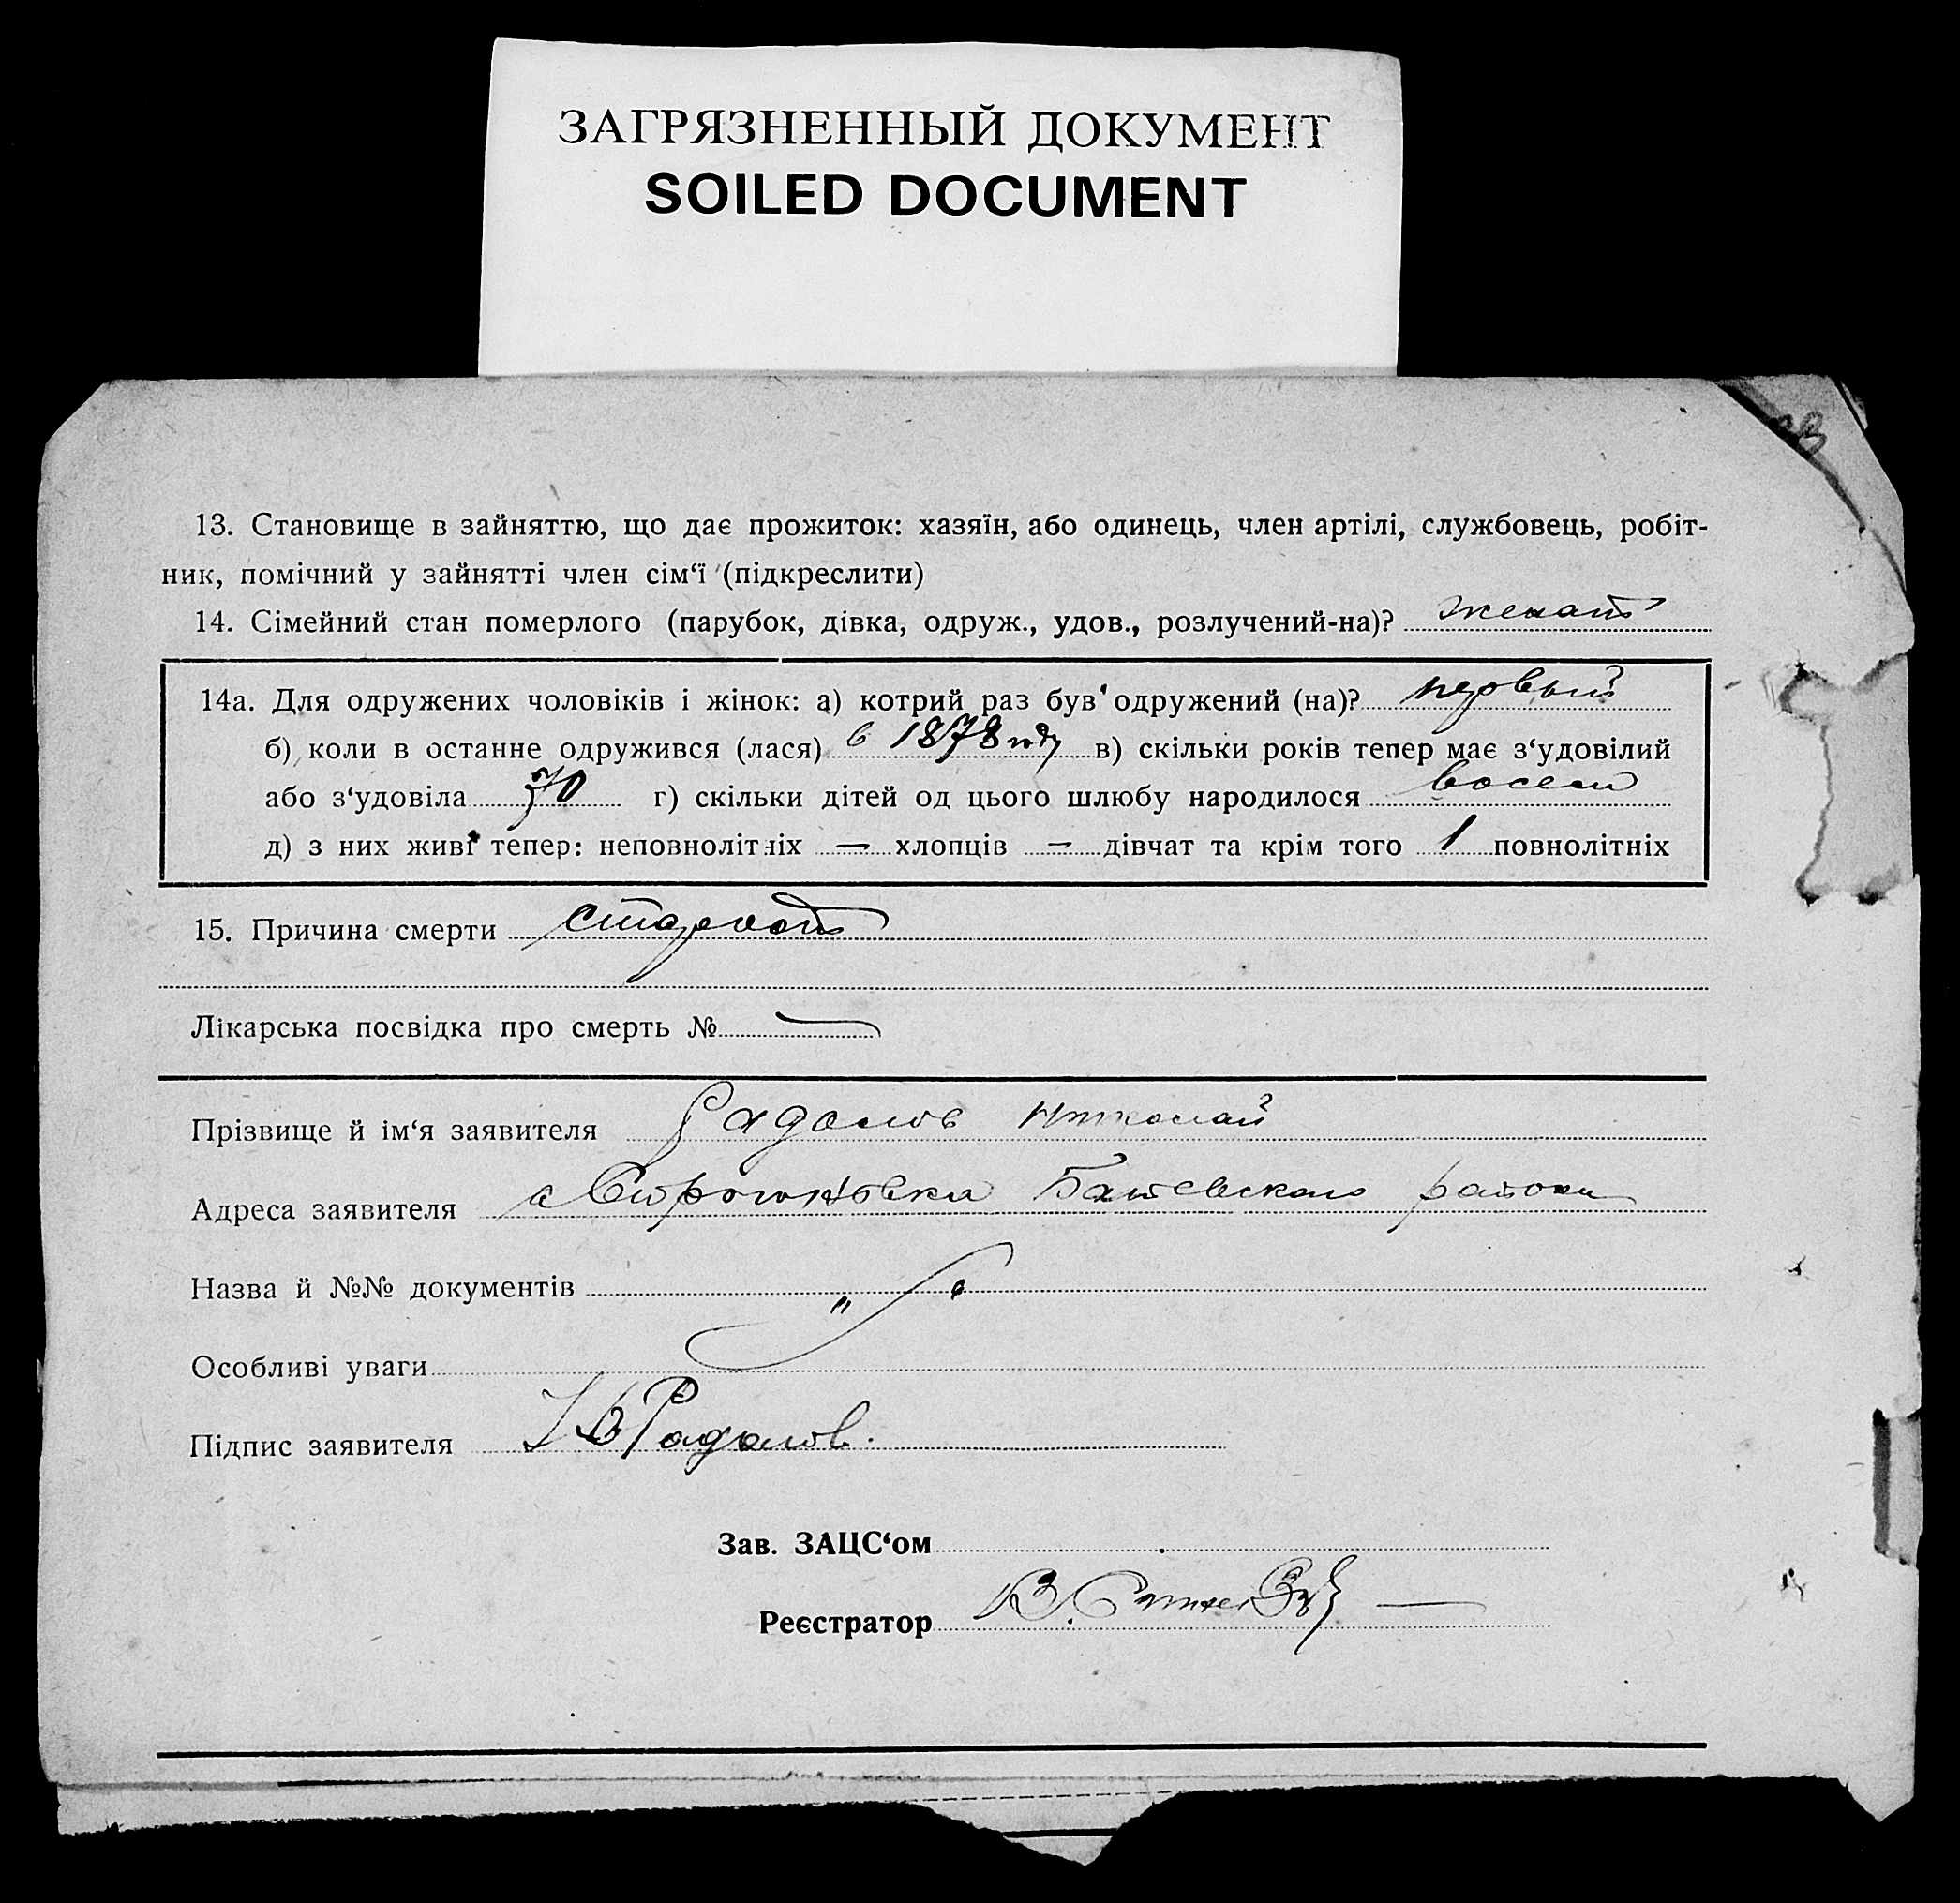 ЗАГРЯЗНЕННЫЙ ДОКУМЕНТ
SOILED DOCUMENT
13. Становище в зайняттю, що дає прожиток: хазяїн, або одинець, член артілі, службовець, робіт-
ник, помічний у зайнятті член сім‘ї (підкреслити)
14. Сімейний стан померлого (парубок, дівка, одруж., удов., розлучений-на)? женат
14а. Для одружених чоловіків і жінок: а) котрий раз був одружений (на)? первый
б) коли в останне одружився (лася) в 1878 году в) скільки років тепер має з‘удовілий
або з‘удовіла 70 г) скільки дітей од цього шлюбу народилося восем
д) з них живі тепер: неповнолітніх — хлопців — дівчат та крім того 1 повнолітніх
15. Причина смерти старость
Лікарська посвідка про смерть № —
Прізвище й ім‘я заявителя Радолов Николай
Адреса заявителя с района
Назва й №№ документів
Особливі уваги
Підпис заявителя Радолов.
Зав. ЗАЦС‘ом
Реєстратор